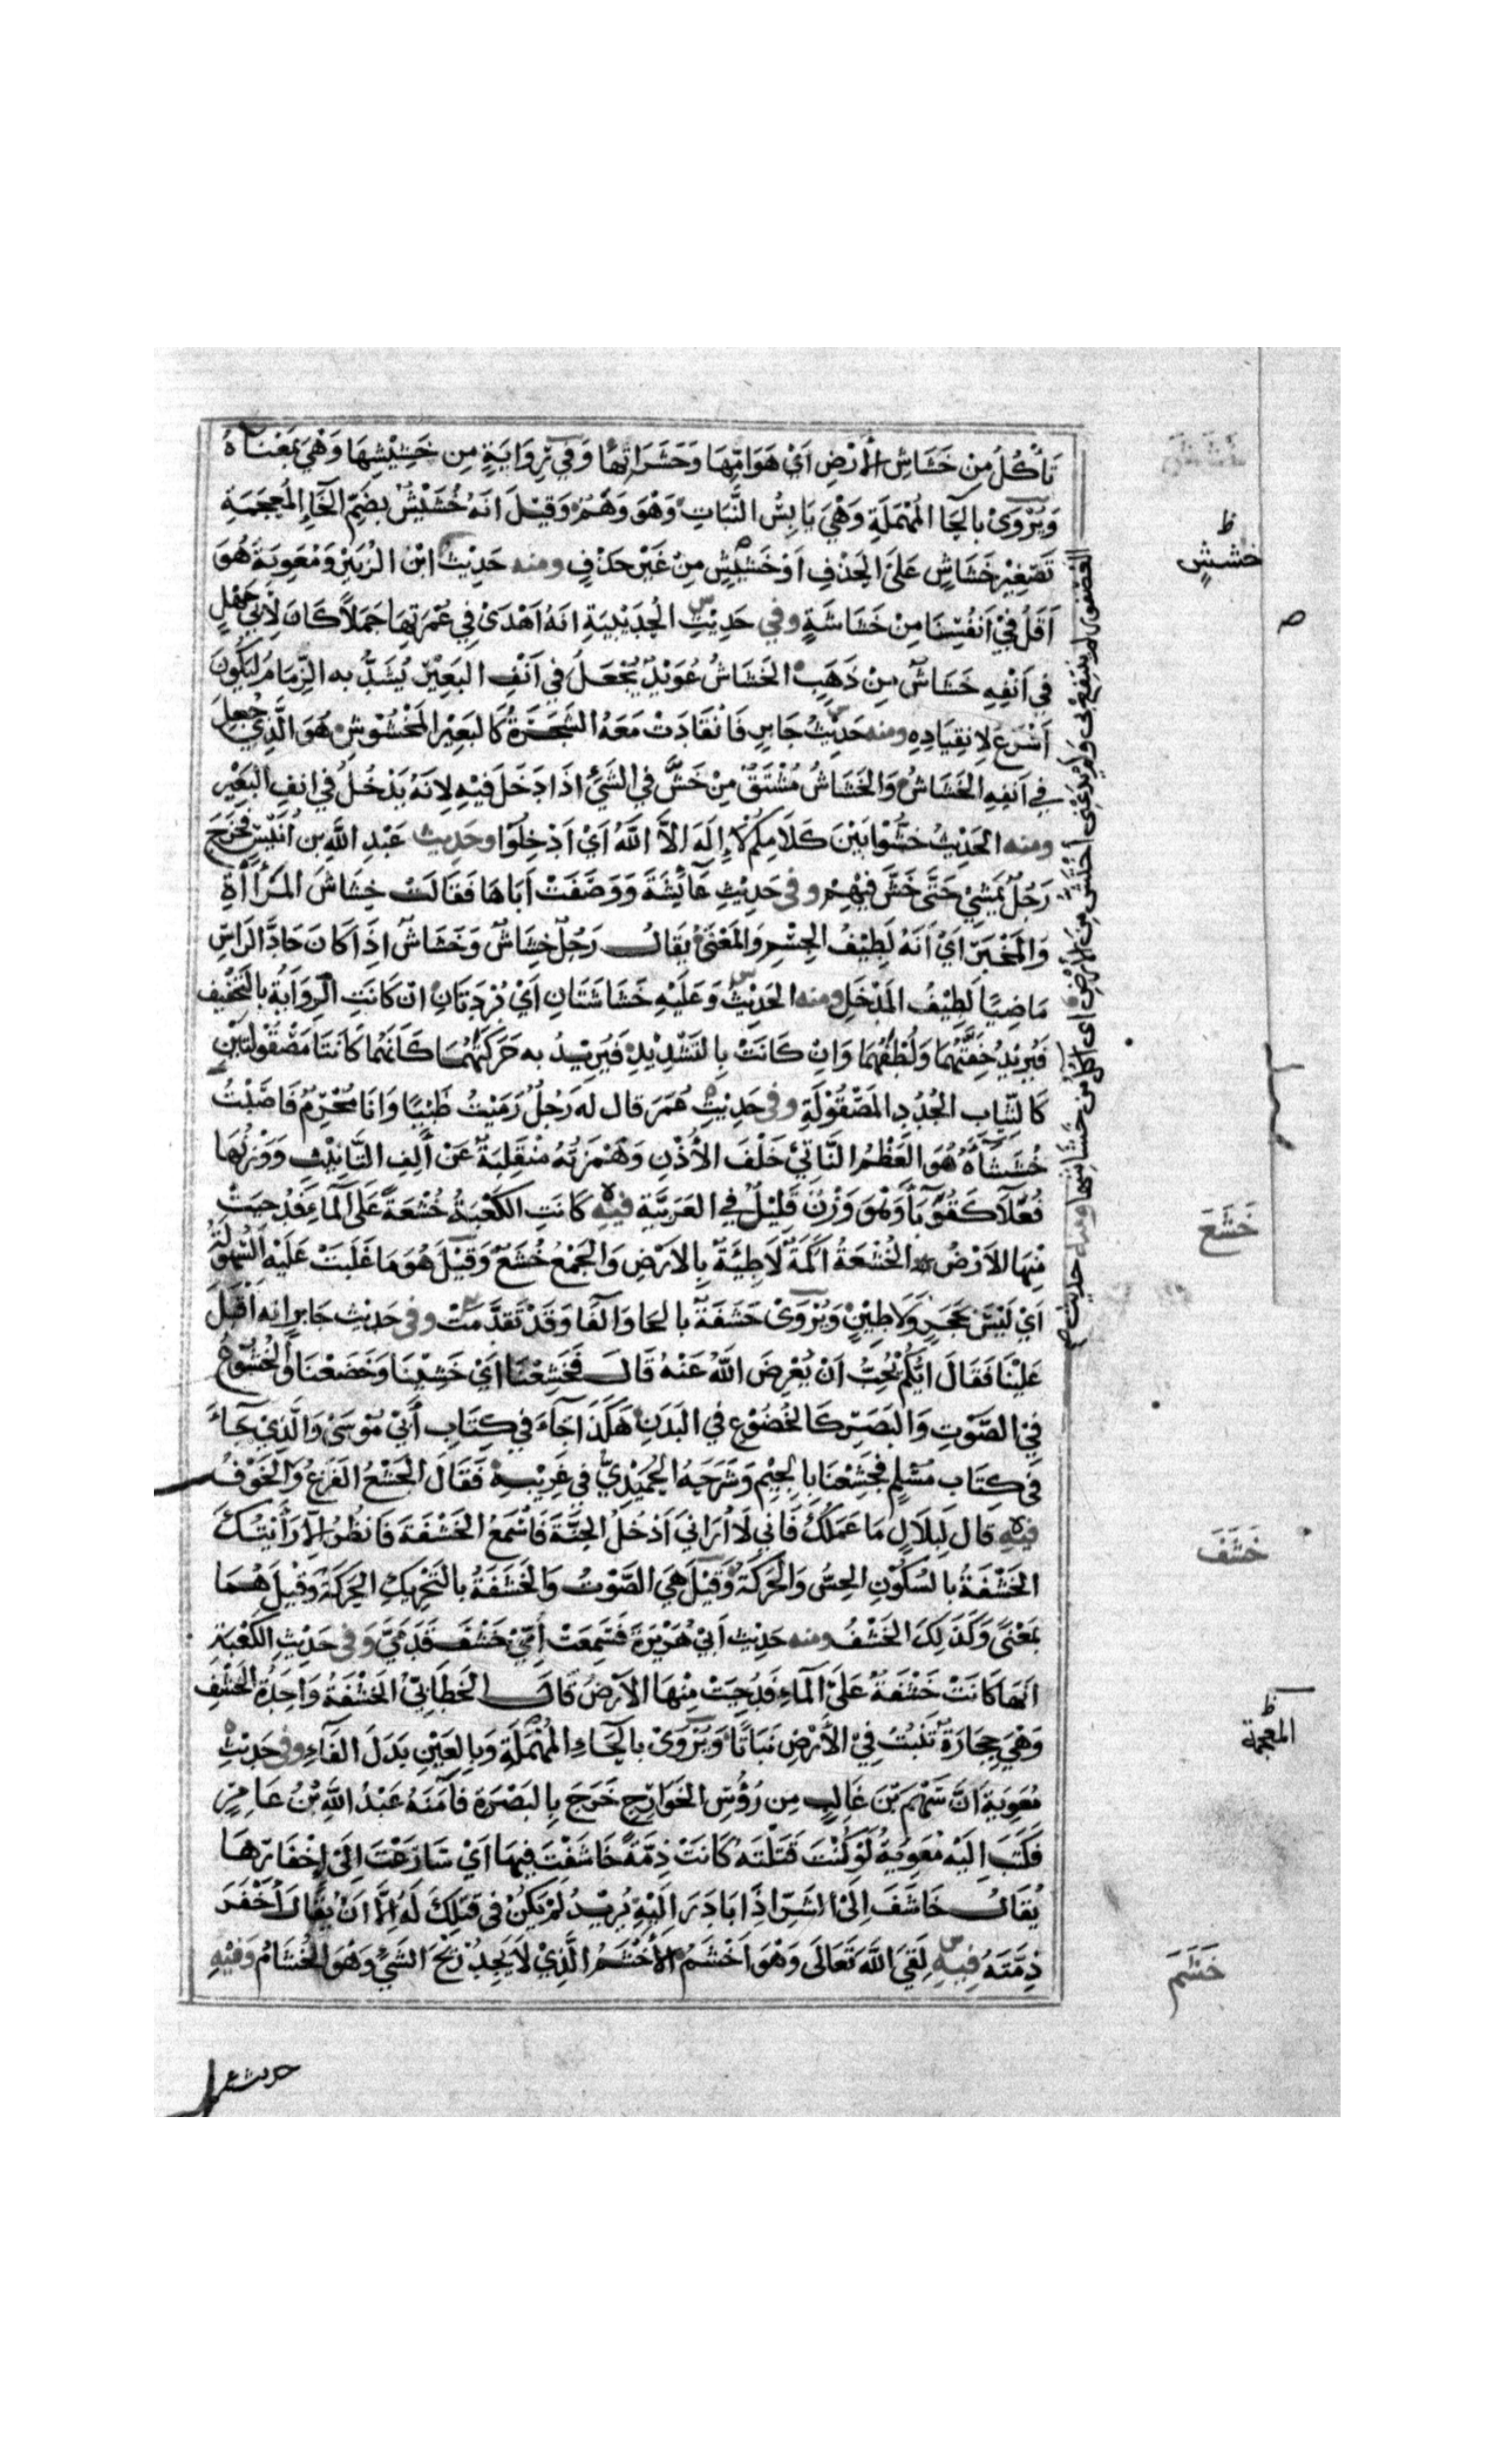 تَأْكُلُ مِنْ خَشَاشِ الْأَرْضِ أَيْ هَوَامِّهَا وَحَشَرَاتِهَا وَفِي رِوَايَةٍ مِنْ خَشِيْشِهَا وَهْيَ بِمَعْنَاهُ
وَيُرْوَىْ بِالحَا المُهْمَلَةِ وَهْيَ يَابِسُ النَّبَاتِ وَهْوَ وَهْمٌ وَقِيْلَ انَهُ خُشَيْشٌ بِضَمِّ الخَاءِ المُعجَمَةِ
تَصْغِيْرُ خَشَاشٍ عَلَى الحَذْفِ اَوْ خُشَيِّشٍ مِنْ غَيْرِ حَذْفٍ ومنه حَدِيْثُ ابْنِ الزُبَيْرِ وَمُعَوِيَةَ هُوَ
اَقَلُّ فِيْ اَنْفُسِنَا مِنْ خَشَاشَةٍ وفي حَدِيْثِ الحُدَيْبِيَةِ انَهُ اَهْدَىْ فِي عُمْرَتِهَا جَمَلًا كَانَ لِأَبِي جَهْلٍ
فِي اَنْفِهِ خَشَاشٌ مِنْ ذَهَبٍ الخَشَاشُ عُوَيْدٌ يُجْعَلُ فِي اَنْفِ البَعِيْرِ يُشَدُّ به الزِّمَامُ لِيَكُونَ
اَسْرَعَ لِانقِيَادِهِ ومنه حَدِيْثُ جَابِرٍ فَانْقَادَتْ مَعَهُ الشَجَرَةُ كَالبَعِيْرِ المَخْشُوْشِ هُوَ الَّذِي جُعِلَ
فِي اَنفِهِ الخَشَاشُ وَالخَشَاشُ مُشْتَقٌ مِنْ خَشَّ فِي الشَيْءِ اذَا دَخَلَ فِيْهِ لِانَهُ يَدْخُلُ فِي انفِ البَعِيْرِ
ومنه الحَدِيْثُ خُشُّوا بَيْنَ كَلَامِكُمْ لَا إِلَهَ الَّا اللَّهُ اَيْ اَدْخِلُوا وحَدِيث عَبْدِ اللَّهِ بن اُنَيْسٍ فَخَرَجَ
رَجُلٌ يَمْشِيْ حَتَّى خَشَّ فِيْهِمْ وفي حَدِيْثِ عَائِشَةَ وَوَصَفَتْ اَبَاهَا فَقَالَت خِشَاشَ المَرْأَةِ
وَالمَخْبَرِ اَيْ اَنَهُ لَطِيْفُ الجِسْمِ وَالمَعْنَىْ يُقَالُ رَجُلٌ خِشَاشٌ وَخَشَاشٌ اِذَا كَانَ حَادَّ الرَاسِ
مَاضِيًا لَطِيْفُ المَدْخَلِ ومنه الحَدِيْثُ وَعَلَيْهِ خَشَاشَتَانِ اَيْ بُرْدَتَانِ انْ كَانَتِ الرِوَايَةُ بِالتَخْفِيْفِ
فَيُرِيْدُ خِفَّتَهُمَا وَلُطْفَهُمَا وَانْ كَانَتْ بِالتَشْدِيْدِ فَيُرِيْدُ به حَرَكَتَهُمَا كَانَهُمَا كَانَتَا مَصْقُوْلَتَيْنِ
كَالثِّيَابِ الجُدُدِ المَصْقُوْلَةِ وفي حَدِيْثِ عُمَرَ قال له رَجُلٌ رَمَيْتُ ظَبْيًا وَانَا مُحْرِمٌ فَاصَبْتُ
خُشَشَاءَهُ هُوَ العَظْمُ النَّاتِئُ خَلْفَ الأُذْنِ وَهَمْزَتُهُ مُنْقَلِبَةٌ عَنْ أَلِفِ التَّانِيْثِ وَوَزْنُهَا
فُعَلَاءُ كَقُوَبَاءَ وَهْوَ وَزْنٌ قَلِيْلٌ فِي العَرَبِيَّةِ فيه كَانَتِ الكَعْبَةُ خُشْعَةً عَلَى المَاءِ فَدُحِيَتْ
مِنْهَا الاَرْضُ الخُشْعَةُ اَكَمَةٌ لَاطِئَةٌ بِالاَرْضِ وَالجَمْعُ خُشَعٌ وَقِيْلَ هُوَ مَا غَلَبَتْ عَلَيْهِ السُهُوْلَةُ
اَيْ لَيْسَ بِحَجَرٍ وَلَا طِيْنٍ وَيُرْوَىْ حَشَفَةٌ بالحَا وَالفَا وَقَدْ تَقَدَّمَتْ وفي حَدِيْثِ جَابِرٍ انه اَقْبَلَ
عَلَيْنَا فَقَالَ ايُّكُمْ يُحِبُّ اَنْ يُعْرِضَ اللَّهُ عَنْهُ قَالَ فَخَشِعْنَا اَيْ خَشِيْنَا وَخَضَعْنَا وَالخُشُوْعُ
فِيْ الصَّوْتِ وَالبَصَرِ كَالخُضُوْعِ فِي البَدَنِ هَكَذَا جَاءَ فِي كِتَابِ أَبِيْ مُوْسَىْ وَالَّذِيْ جَاءَ
فِي كِتَابِ مُسْلِمٍ فَجَشِعْنَا بِالجِيْمِ وَشَرَحَهُ الحُمَيْدِيُّ فِي غَرِيْبِهِ فَقَالَ الجَشَعُ الفَزَعُ وَالخَوْفُ
فيه قال لِبِلَالٍ مَا عَمَلُكَ فَانِي لَا اُرَانِي اَدْخُلُ الجَنَّةَ فَاَسْمَعُ الخَشْفَةَ فَانظُرُ الَّا رَأَيْتُكَ
الخَشْفَةُ بالسُكُوْنِ الحِسُّ وَالحَرَكَةُ وَقِيْلَ هِيَ الصَّوْتُ وَالخَشَفَةُ بالتَحْرِيكِ الحَرَكَةُ وَقِيْلَ هُمَا
بِمَعْنًى وَكَذَلِكَ الخَشْفُ ومنه حَدِيْثِ اَبِيْ هُرَيْرَةَ فَسَمِعَتْ اُمِّيْ خَشْفَ قَدَمَيَّ وَفِي حَدِيْثِ الكَعْبَةِ
انَهَا كَانَتْ خَشَفَةً عَلَى المَاءِ فَدُحِيَتْ مِنْهَا الاَرْضُ قَالَ الخَطَابِيُّ الخَشَفَةُ وَاحِدَةُ الخَشَفِ
وَهْيَ حِجَارَةٌ تَنْبُتُ فِيْ الأَرْضِ نَبَاتًا وَيُرْوَىْ بالحَاءِ المُهْمَلَةِ وَبِالعَيْنِ بَدَلَ الفَاءِ وفي حَدِيْثِ
مُعَوِيَةَ اَنَّ سَهْمَ بْنَ غَالِبٍ مِن رُؤُسِ الخَوَارِجِ خَرَجَ بِالبَصْرَةِ فَآمَنَهُ عَبْدُ اللَّهِ بْنُ عَامِرٍ
فَكَتَبَ اِلَيْهِ مُعَوِيَةُ لَوْ كُنْتَ قَتَلْتَهُ كَانَتْ ذِمَّةً خَاشَفْتَ فِيهَا اَيْ سَارَعْتَ اِلَى اِخْفَارِهَا
يُقَالُ خَاشَفَ اِلَى الشَرِّ اِذَا بَادَرَ اِلَيْهِ يُرِيْدُ لَمْ يَكُنْ فِي قَتْلِكَ لَهُ اِلَّا اَنْ يُقَالَ اَخْفَرَ
ذِمَّتَهُ فِيهِ لَقِيَ اللَّهَ تَعَالَى وَهْوَ اَخْشَمُ الاَخْشَمُ الَّذِيْ لَا يَجِدُ رِيْحَ الشَيْءِ وَهُوَ الخُشَامُ وَفِيْهِ
ظ
خشيشٍ
خَشَعَ
خَشَفَ
ظ
المعجمة
خَشَمَ
العُصْفُورِ لم ينتفع بى ولم يدعنى اختش من الأرض اى آكل من خشاشها ومنه حديث